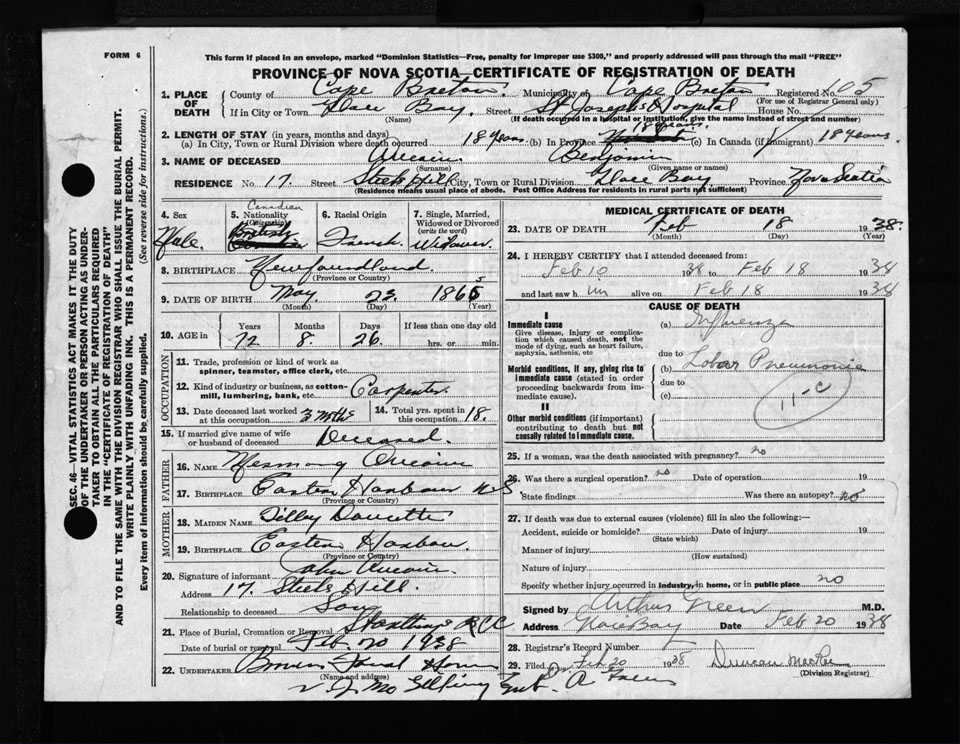 FORM 6
This form if placed in an envelope, marked "Dominion Statistics—Free, penalty for improper use $300," and properly addressed will pass through the mail "FREE"
PROVINCE OF NOVA SCOTIA—CERTIFICATE OF REGISTRATION OF DEATH
1. PLACE OF DEATH County of Cape Breton Municipality of Cape Breton Registered No. 105
(For use of Registrar General only)
If in City or Town Glace Bay Street St Josephs Hospital House No.
(Name) (If death occurred in a hospital or institution, give the name instead of street and number)
2. LENGTH OF STAY (in years, months and days)
(a) In City, Town or Rural Division where death occurred 18 years (b) In Province 18 years. (c) In Canada (if immigrant) 18 years
3. NAME OF DECEASED Aucoin Benjamin
(Surname) (Given name or names)
RESIDENCE No. 17. Street Steele Hill City, Town or Rural Division Glace Bay Province Nova Scotia
(Residence means usual place of abode. Post Office Address for residents in rural parts not sufficient)
4. Sex Male.
5. Nationality (Citizenship) Canadian British
6. Racial Origin French.
7. Single, Married, Widowed or Divorced (write the word) Widower.
8. BIRTHPLACE Newfoundland.
(Province or Country)
9. DATE OF BIRTH May 23. 1865
(Month) (Day) (Year)
10. AGE in Years 72 Months 8. Days 26. If less than one day old hrs. or min.
OCCUPATION
11. Trade, profession or kind of work as spinner, teamster, office clerk, etc.
12. Kind of industry or business, as cotton-mill, lumbering, bank, etc. Carpenter
13. Date deceased last worked at this occupation 3 Mths 14. Total yrs. spent in this occupation 18.
15. If married give name of wife or husband of deceased Deceased.
FATHER
16. NAME Aucoin
17. BIRTHPLACE Eastern Harbour NS
(Province or Country)
MOTHER
18. MAIDEN NAME Tilby Doucette
19. BIRTHPLACE Eastern Harbour
(Province or Country)
20. Signature of informant John Aucoin
Address 17. Steele Hill.
Relationship to deceased Son
21. Place of Burial, Cremation or Removal RCC
Date of burial or removal Feb. 20 1938
22. UNDERTAKER
(Name and address)
MEDICAL CERTIFICATE OF DEATH
23. DATE OF DEATH Feb 18 1938.
(Month) (Day) (Year)
24. I HEREBY CERTIFY that I attended deceased from:
Feb 10 1938 to Feb 18 1938
and last saw him alive on Feb 18 1938
CAUSE OF DEATH
I
Immediate cause
Give disease, injury or complication which caused death, not the mode of dying, such as heart failure, asphyxia, asthenia, etc
(a) Influenza
due to
Morbid conditions, if any, giving rise to immediate cause (stated in order proceeding backwards from immediate cause).
(b) Lobar Pneumonia
due to
(c)
11-C
II
Other morbid conditions (if important) contributing to death but not causally related to immediate cause.
25. If a woman, was the death associated with pregnancy? no
26. Was there a surgical operation? no Date of operation 19
State findings Was there an autopsy? no
27. If death was due to external causes (violence) fill in also the following:—
Accident, suicide or homicide? Date of injury 19
(State which)
Manner of injury
(How sustained)
Nature of injury
Specify whether injury occurred in industry, in home, or in public place no
Signed by Arthur Green M.D.
Address Glace Bay Date Feb 20 1938
28. Registrar's Record Number
29. Filed Feb 20 1938 Duncan MacRae
(Division Registrar)
SEC. 46—VITAL STATISTICS ACT MAKES IT THE DUTY
OF THE UNDERTAKER OR PERSON ACTING AS UNDERTAKER TO OBTAIN ALL THE PARTICULARS REQUIRED
IN THE "CERTIFICATE OF REGISTRATION OF DEATH"
AND TO FILE THE SAME WITH THE DIVISION REGISTRAR WHO SHALL ISSUE THE BURIAL PERMIT.
WRITE PLAINLY WITH UNFADING INK. THIS IS A PERMANENT RECORD.
Every item of information should be carefully supplied. (See reverse side for instructions.)